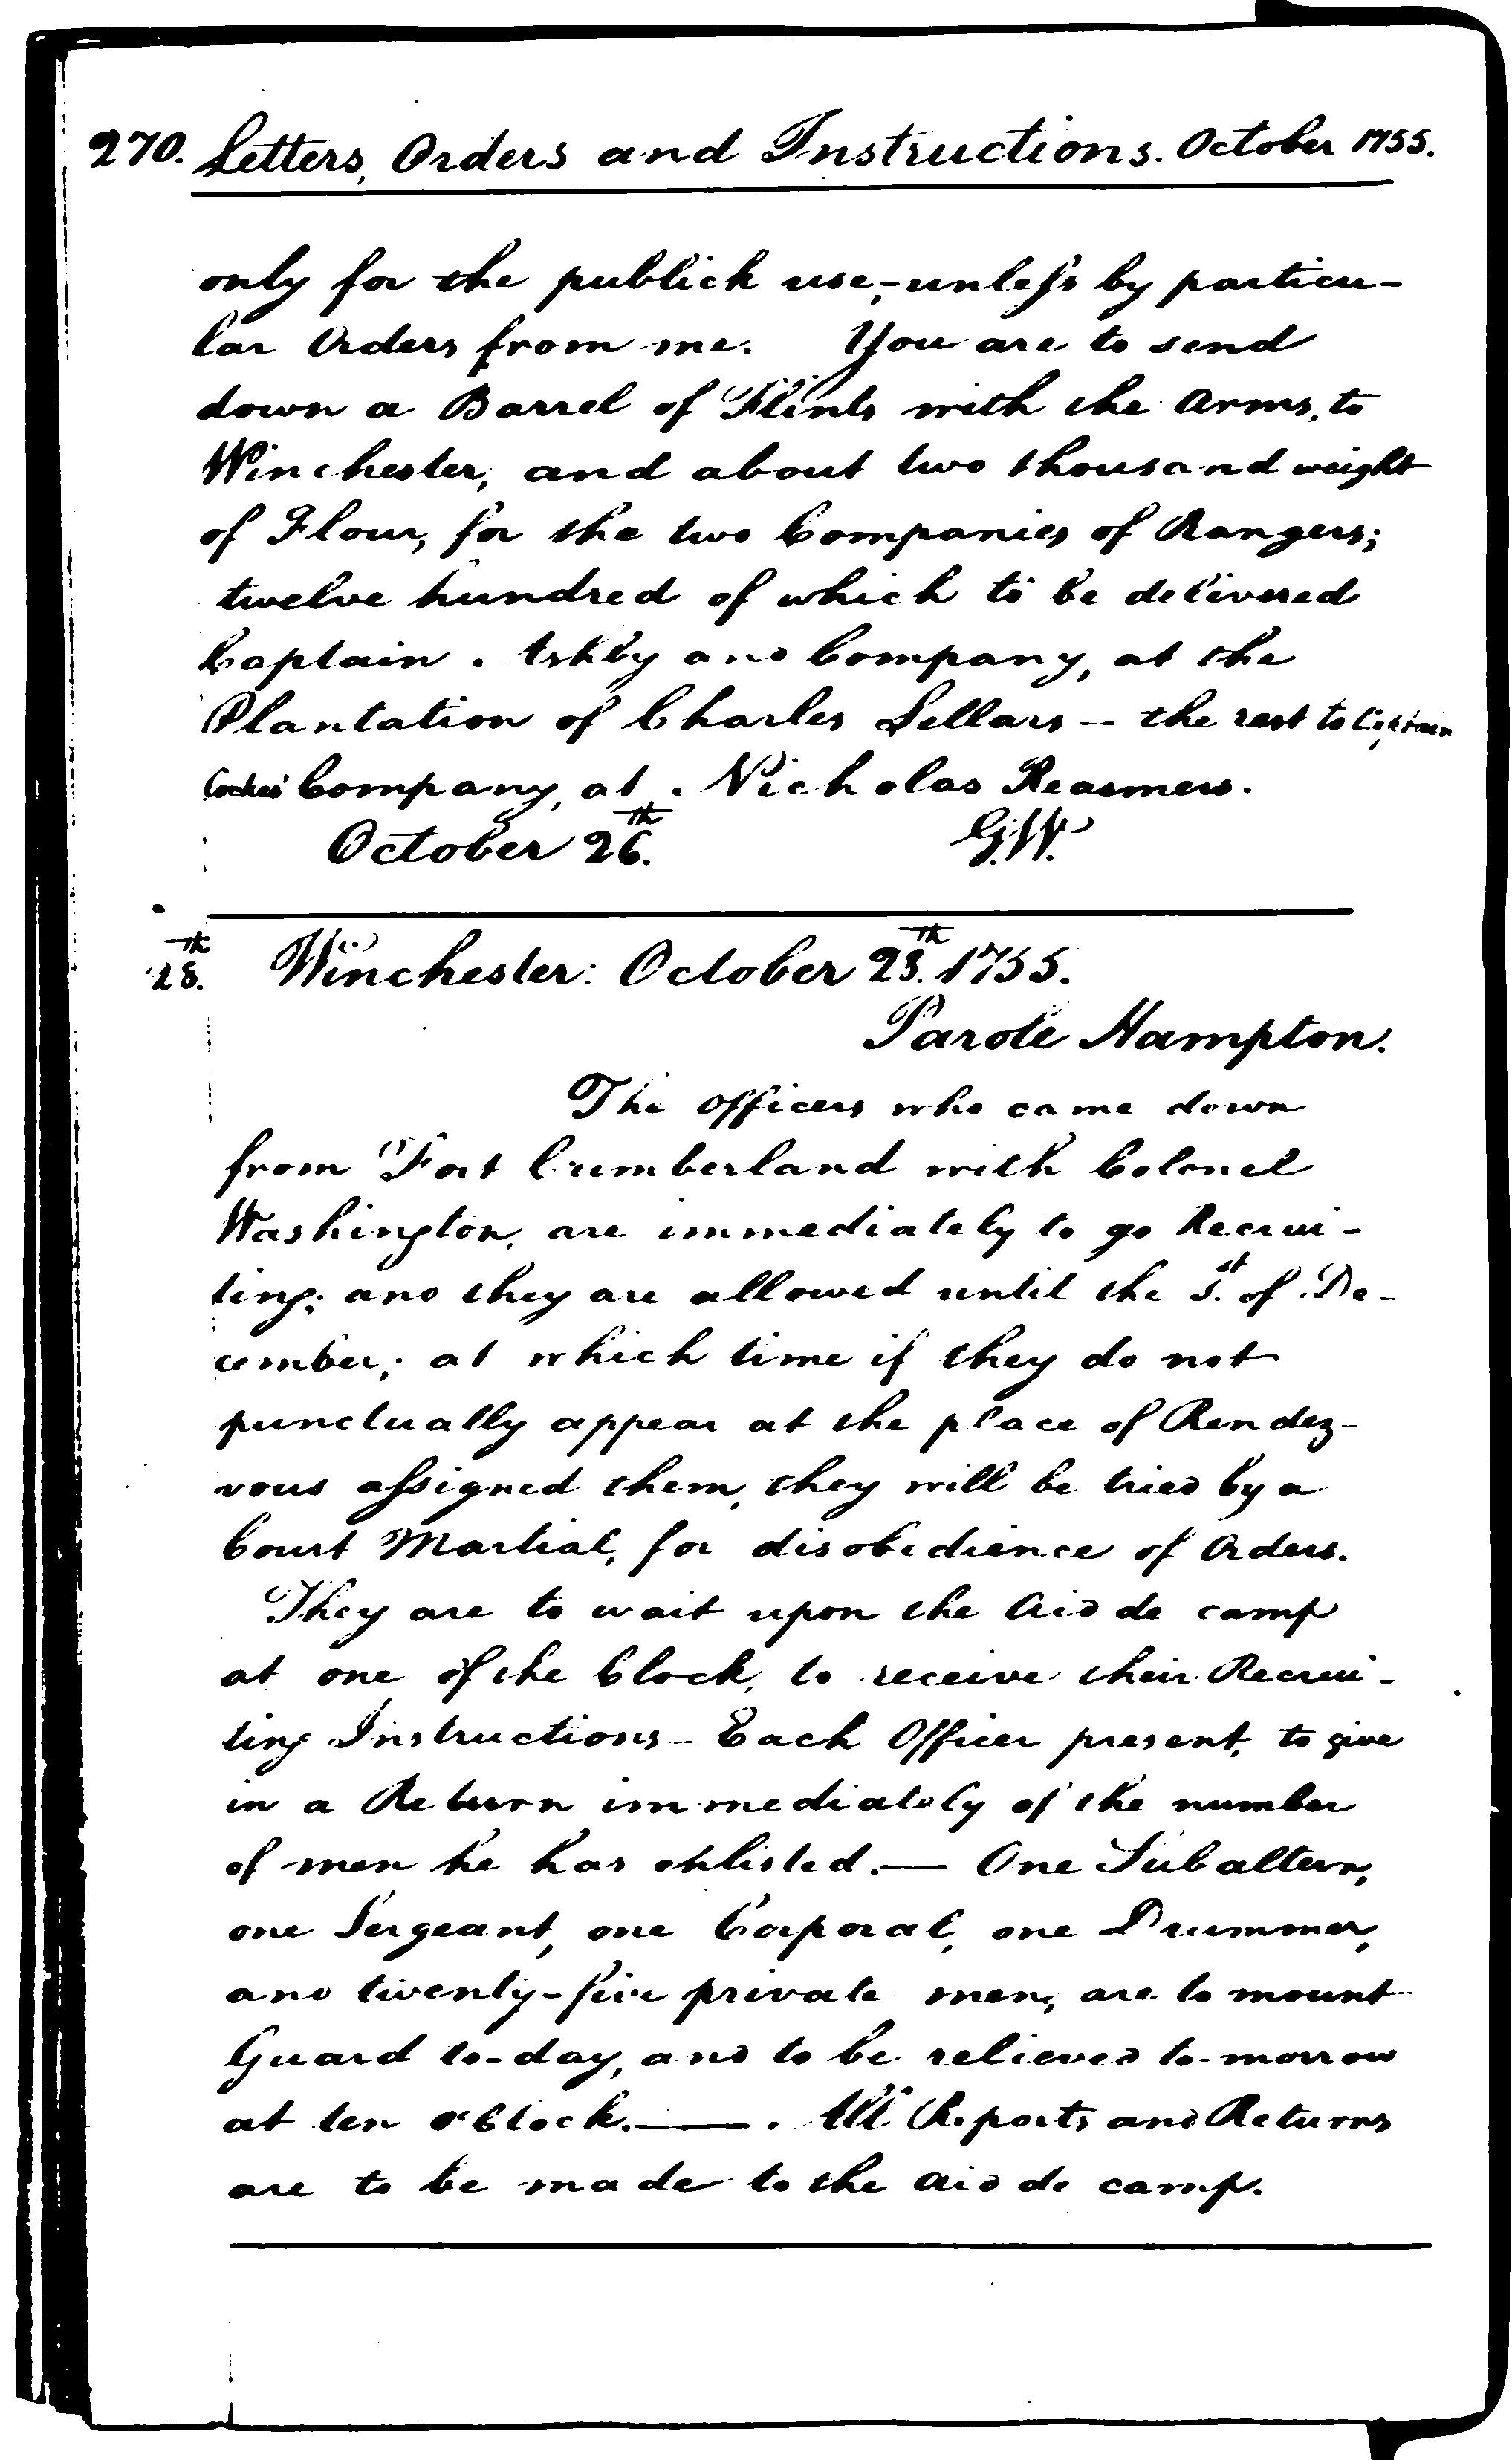 270. Letters, Orders and Instructions. October 1755.
only for the publick use,-unless by particu-
lar Orders from me. You are to send
down a Barrel of Flints with the Arms, to
Winchester, and about two thousand weight
of Flour, for the two Companies of Rangers;
twelve hundred of which to be delivered
Captain Ashby and Company, at the
Plantation of Charles Sellars -- the rest to Captain
Cockes' Company, at Nicholas Reasmers.
October 26th. G.W.
28th. Winchester: October 28th. 1755.
Parole Hampton.
The Officers who came down
from Fort Cumberland with Colonel
Washington, are immediately to go Recrui-
ting; and they are allowed until the 1st. of De-
cember; at which time if they do not
punctually appear at the place of Rendez-
vous assigned them, they will be tried by a
Court Martial, for disobedience of Orders.
They are to wait upon the Aid de camp
at one of the Clock, to receive their Recrui-
ting Instructions - Each Officer present, to give
in a Return immediately of the number
of men he has enlisted.— One Subaltern,
one Sergeant, one Corporal, one Drummer,
and twenty-five private men, are to mount
Guard to-day, and to be relieved to-morrow
at ten o'Clock.—. All Reports and Returns
are to be made to the Aid de camp.